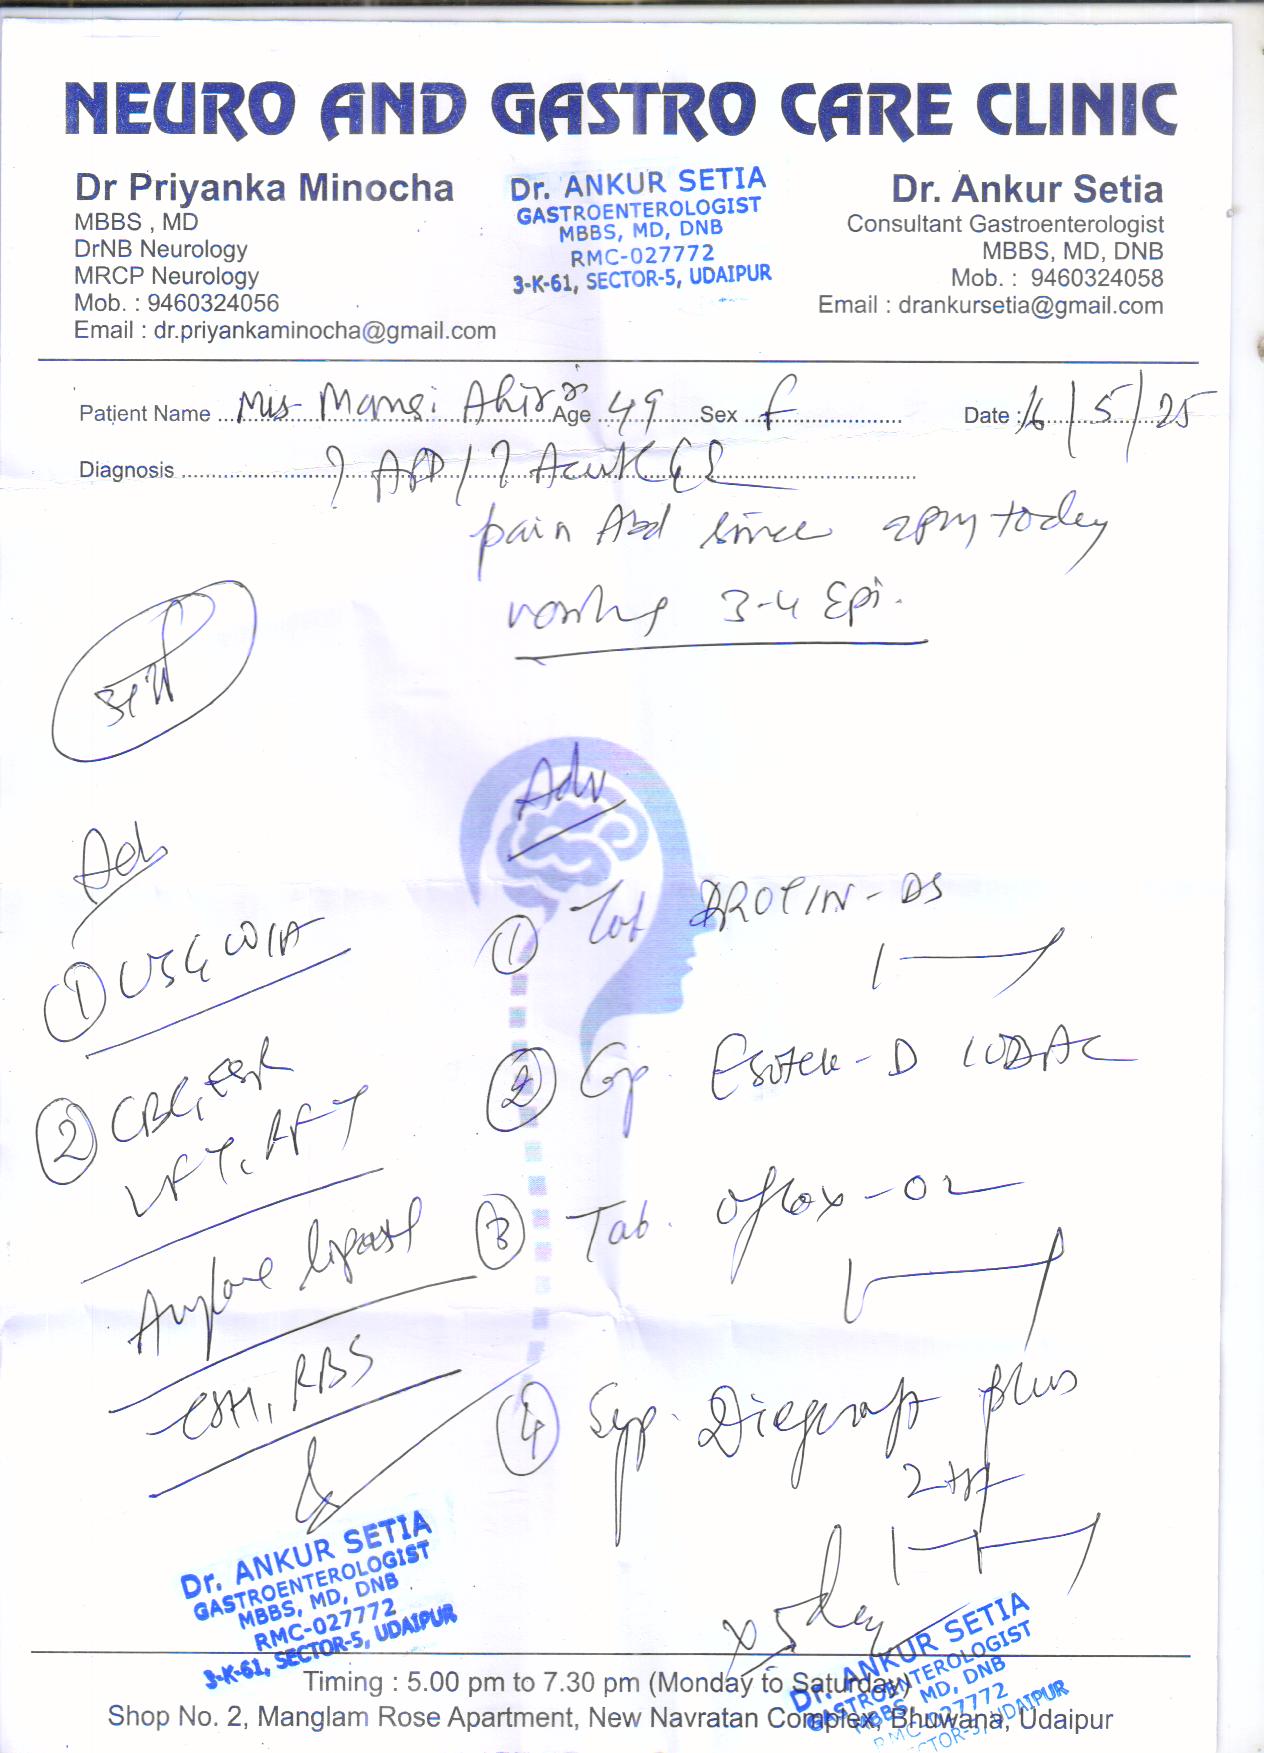 NEURO AND GASTRO CARE CLINIC
Dr Priyanka Minocha
MBBS , MD
DrNB Neurology
MRCP Neurology
Mob. : 9460324056
Email : dr.priyankaminocha@gmail.com
Dr. ANKUR SETIA
GASTROENTEROLOGIST
MBBS, MD, DNB
RMC-027772
3-K-61, SECTOR-5, UDAIPUR
Dr. Ankur Setia
Consultant Gastroenterologist
MBBS, MD, DNB
Mob. : 9460324058
Email : drankursetia@gmail.com
Patient Name Mrs Mangi Ahir Age 49 Sex f Date : 16/5/25
Diagnosis ? APD / ? Acute
pain Abd since 2pm today
3-4 Epi.
Adv
① USG W/A
② CBC, ESR
LFT, RFT
Amylase lipase
RBS
Adv
① Tab DROTIN-DS
② Cap.
③ Tab. Oflox-OZ
④ Syp. plus
2 tsf
x 5 day
Dr. ANKUR SETIA
GASTROENTEROLOGIST
MBBS, MD, DNB
RMC-027772
3-K-61, SECTOR-5, UDAIPUR
Dr. ANKUR SETIA
GASTROENTEROLOGIST
MBBS, MD, DNB
RMC-027772
SECTOR-5, UDAIPUR
Timing : 5.00 pm to 7.30 pm (Monday to Saturday)
Shop No. 2, Manglam Rose Apartment, New Navratan Complex, Bhuwana, Udaipur